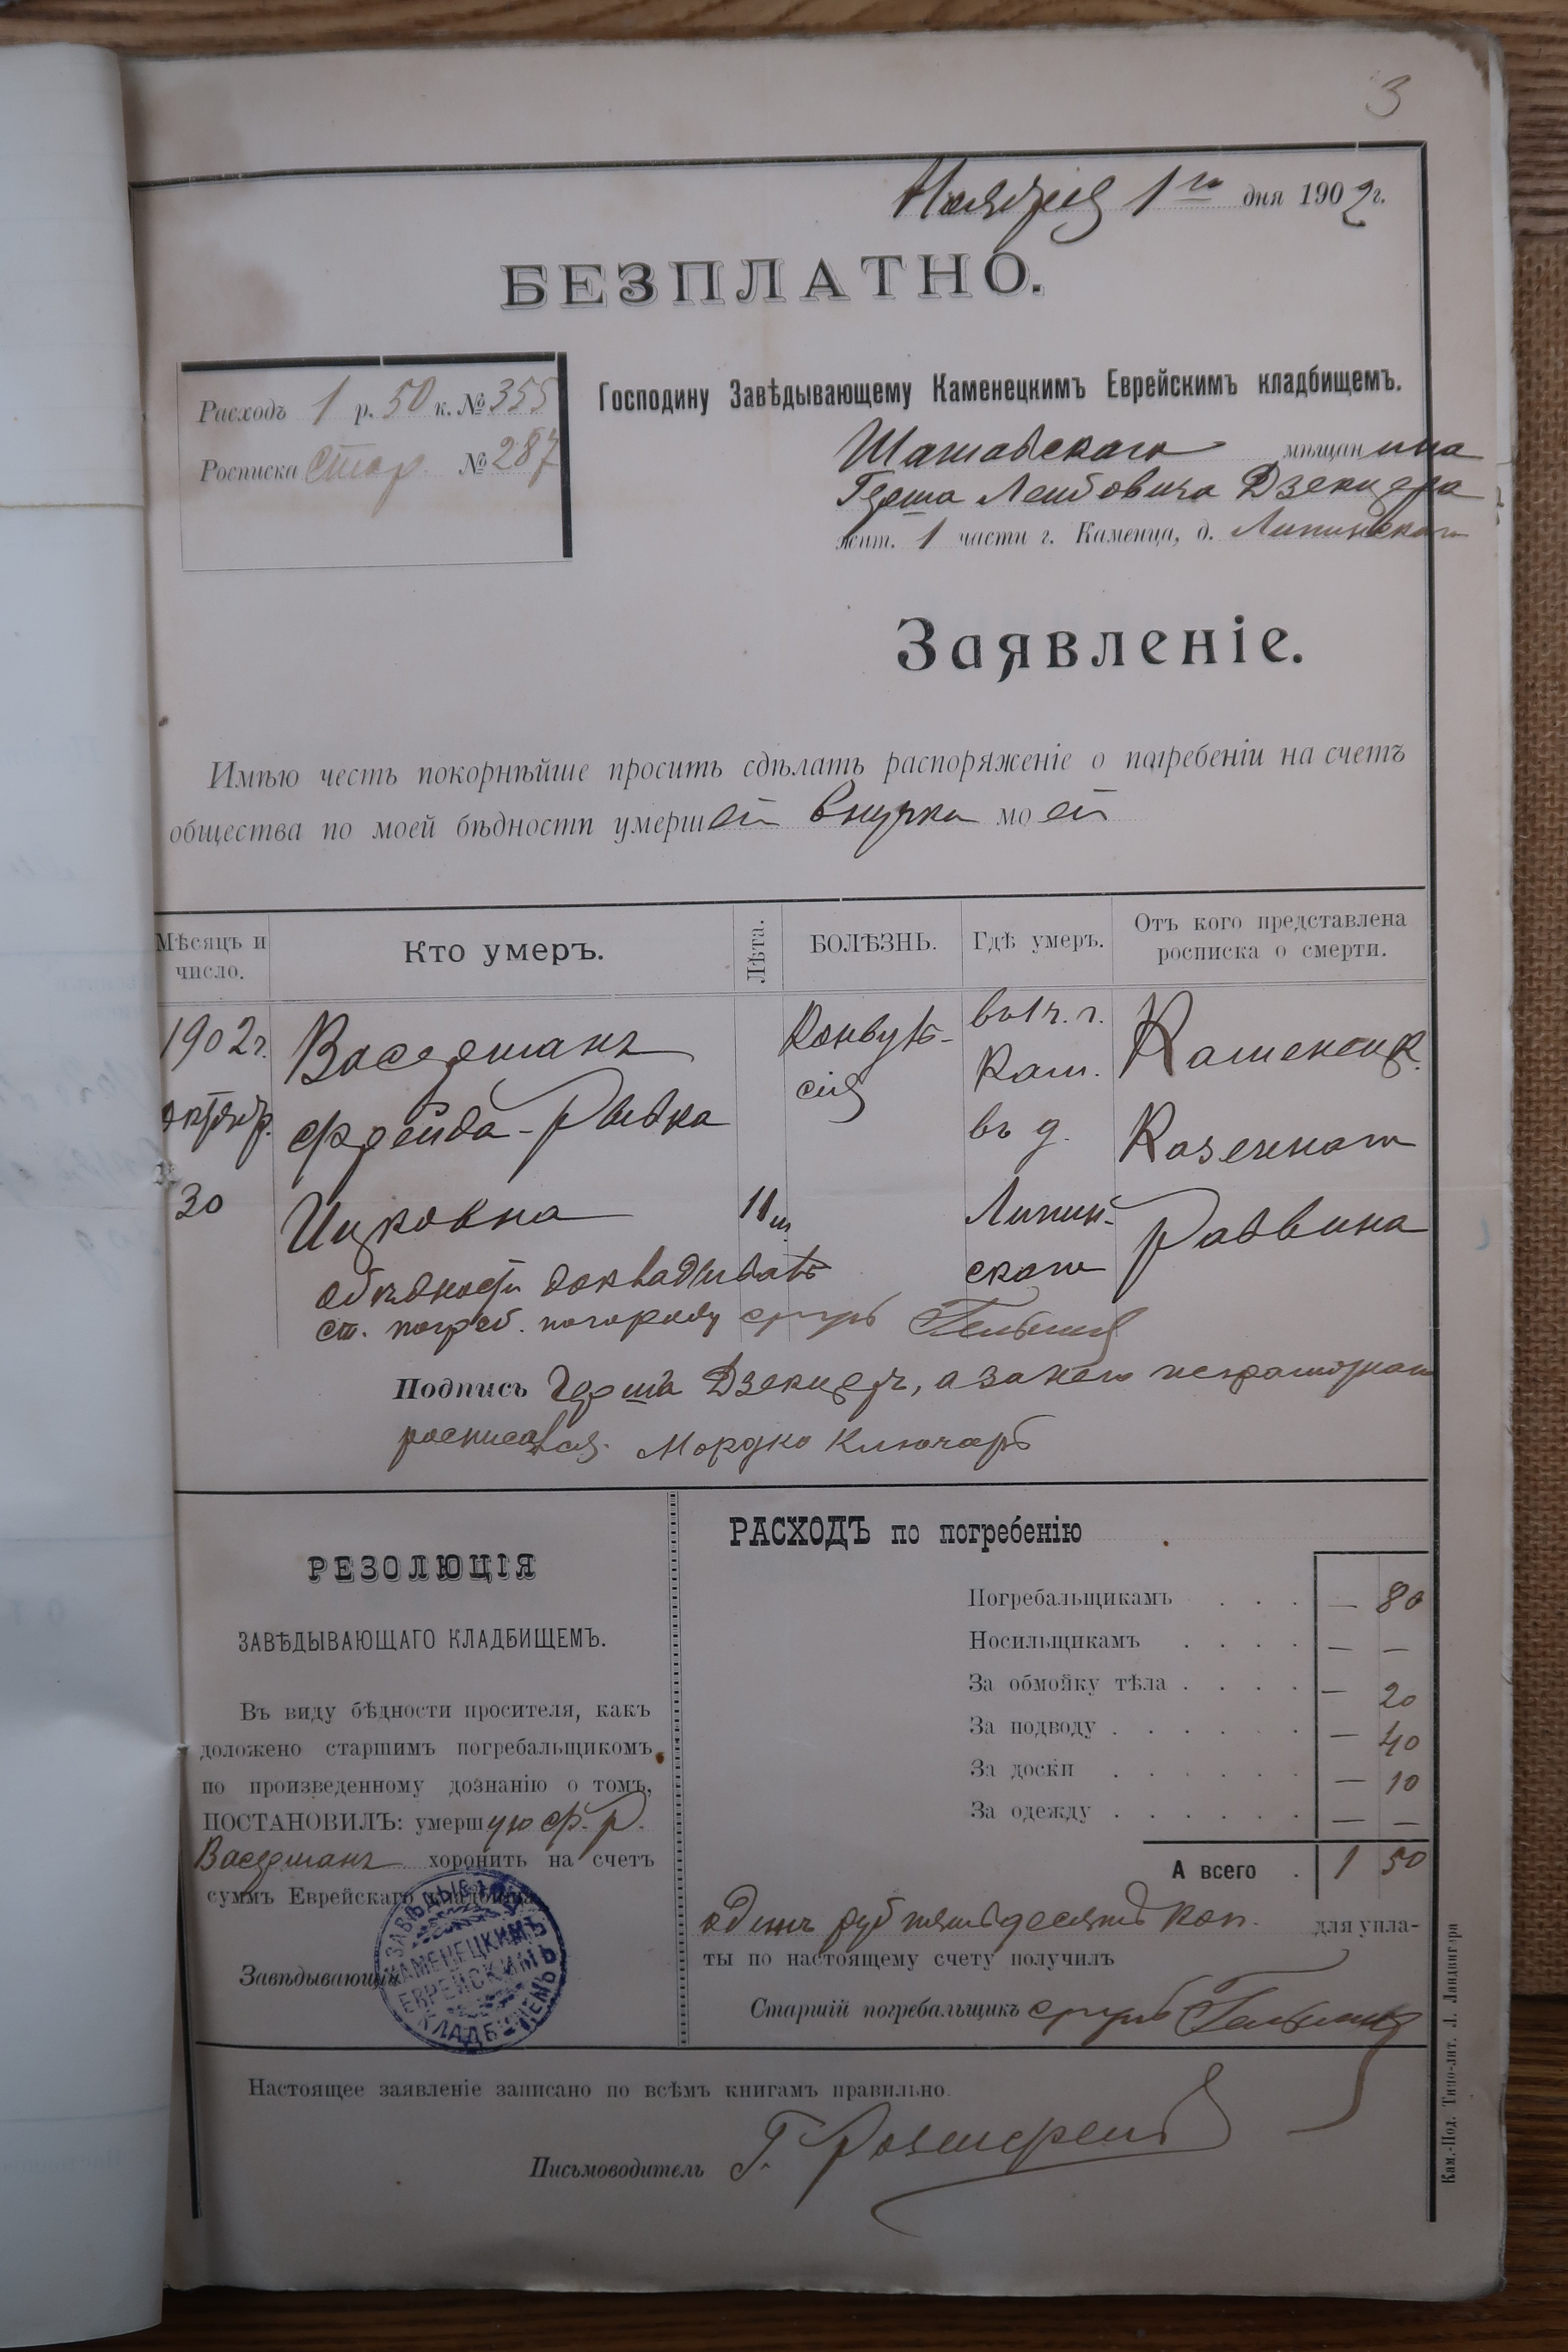 3
Ноября 1го дня 1902 г.
БЕЗПЛАТНО.
Расходъ 1 р. 50 к. № 355
Росписка стар. № 287
Господину Завѣдывающему Каменецкимъ Еврейскимъ кладбищемъ.
Шатавскаго мѣщанина
Герша Лейбовича Дзекцера
жит. 1 части г. Каменца, д. Липинскаго
Заявленіе.
Имѣю честь покорнѣйше просить сдѣлать распоряженіе о погребеніи на счетъ
общества по моей бѣдности умершей внучки моей
Мѣсяцъ и число.
Кто умеръ.
Лѣта.
БОЛѢЗНЬ.
Гдѣ умеръ.
Отъ кого представлена росписка о смерти.
1902 г. Васерманъ Конвуль- въ 1 ч. г. Каменецк.
октябр. Фрейда-Рывка сія Кам. въ д. Казеннаго
30 Ицковна 11 м Липин- Раввина
скаго
о бѣдности докладываетъ
ст. погреб.
Подпись Гершъ Дзекцеръ, а за него неграмотнаго
росписался Мордко Ключаръ
РЕЗОЛЮЦІЯ
ЗАВѢДЫВАЮЩАГО КЛАДБИЩЕМЪ.
Въ виду бѣдности просителя, какъ
доложено старшимъ погребальщикомъ,
по произведенному дознанію о томъ,
ПОСТАНОВИЛЪ: умершую Ф. Р.
Васерманъ хоронить на счетъ
суммъ Еврейскаго кладбища.
Завѣдывающій
ЗАВѢДЫВАЮЩ
КАМЕНЕЦКИМЪ
ЕВРЕЙСКИМЪ
КЛАДБИЩЕМЪ
РАСХОДЪ по погребенію
Погребальщикамъ . . . — 80
Носильщикамъ . . . . — —
За обмойку тѣла . . . . — 20
За подводу . . . . . . — 40
За доски . . . . . . — 10
За одежду . . . . . . — —
А всего . 1 50
одинъ руб пятьдесятъ коп. для упла-
ты по настоящему счету получилъ
Старшій погребальщикъ
Настоящее заявленіе записано по всѣмъ книгамъ правильно.
Письмоводитель Г.
Кам.-Под. Типо-лит. Л. Ландвигера